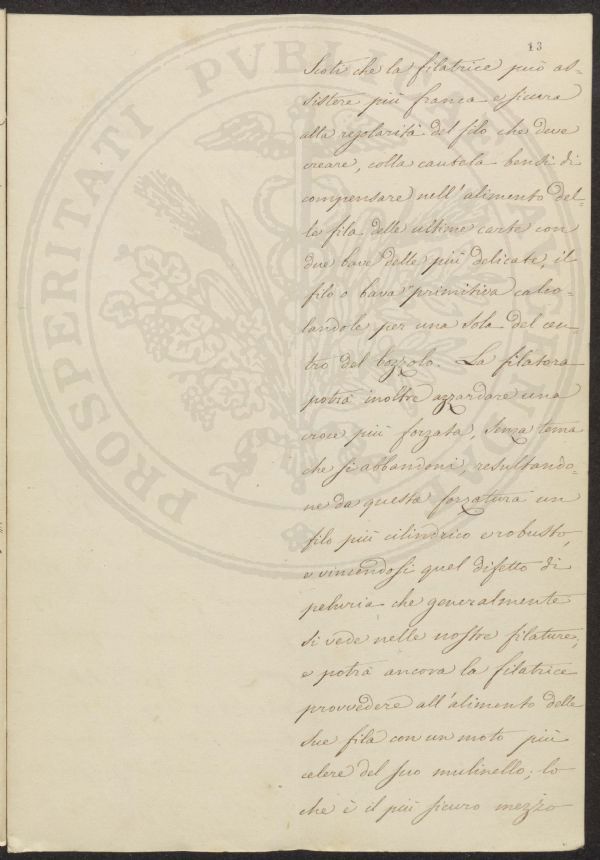 13
Scoti che la filatrice può as=
sistere più franca e sicura
alla regolarità del filo che deve
creare, colla cautela bensì di
compensare nell'alimento del=
le fila delle ultime carte con
due bave delle più delicate, il
filo o bava primitiva calco=
landole per una sola del cen=
tro del bozzolo. La filatora
potrà inoltre azzardare una
croce più forzata, senza tema
che si abbandoni, resultando=
ne da questa forzatura un
filo più cilindrico e robusto,
e vincendosi quel difetto di
peluria che generalmente
si vede nelle nostre filature,
e potrà ancora la filatrice
provvedere all'alimento delle
sue fila con un moto più
celere del suo mulinello; lo
che è il più sicuro mezzo
PROSPERITATI PVBLICAE